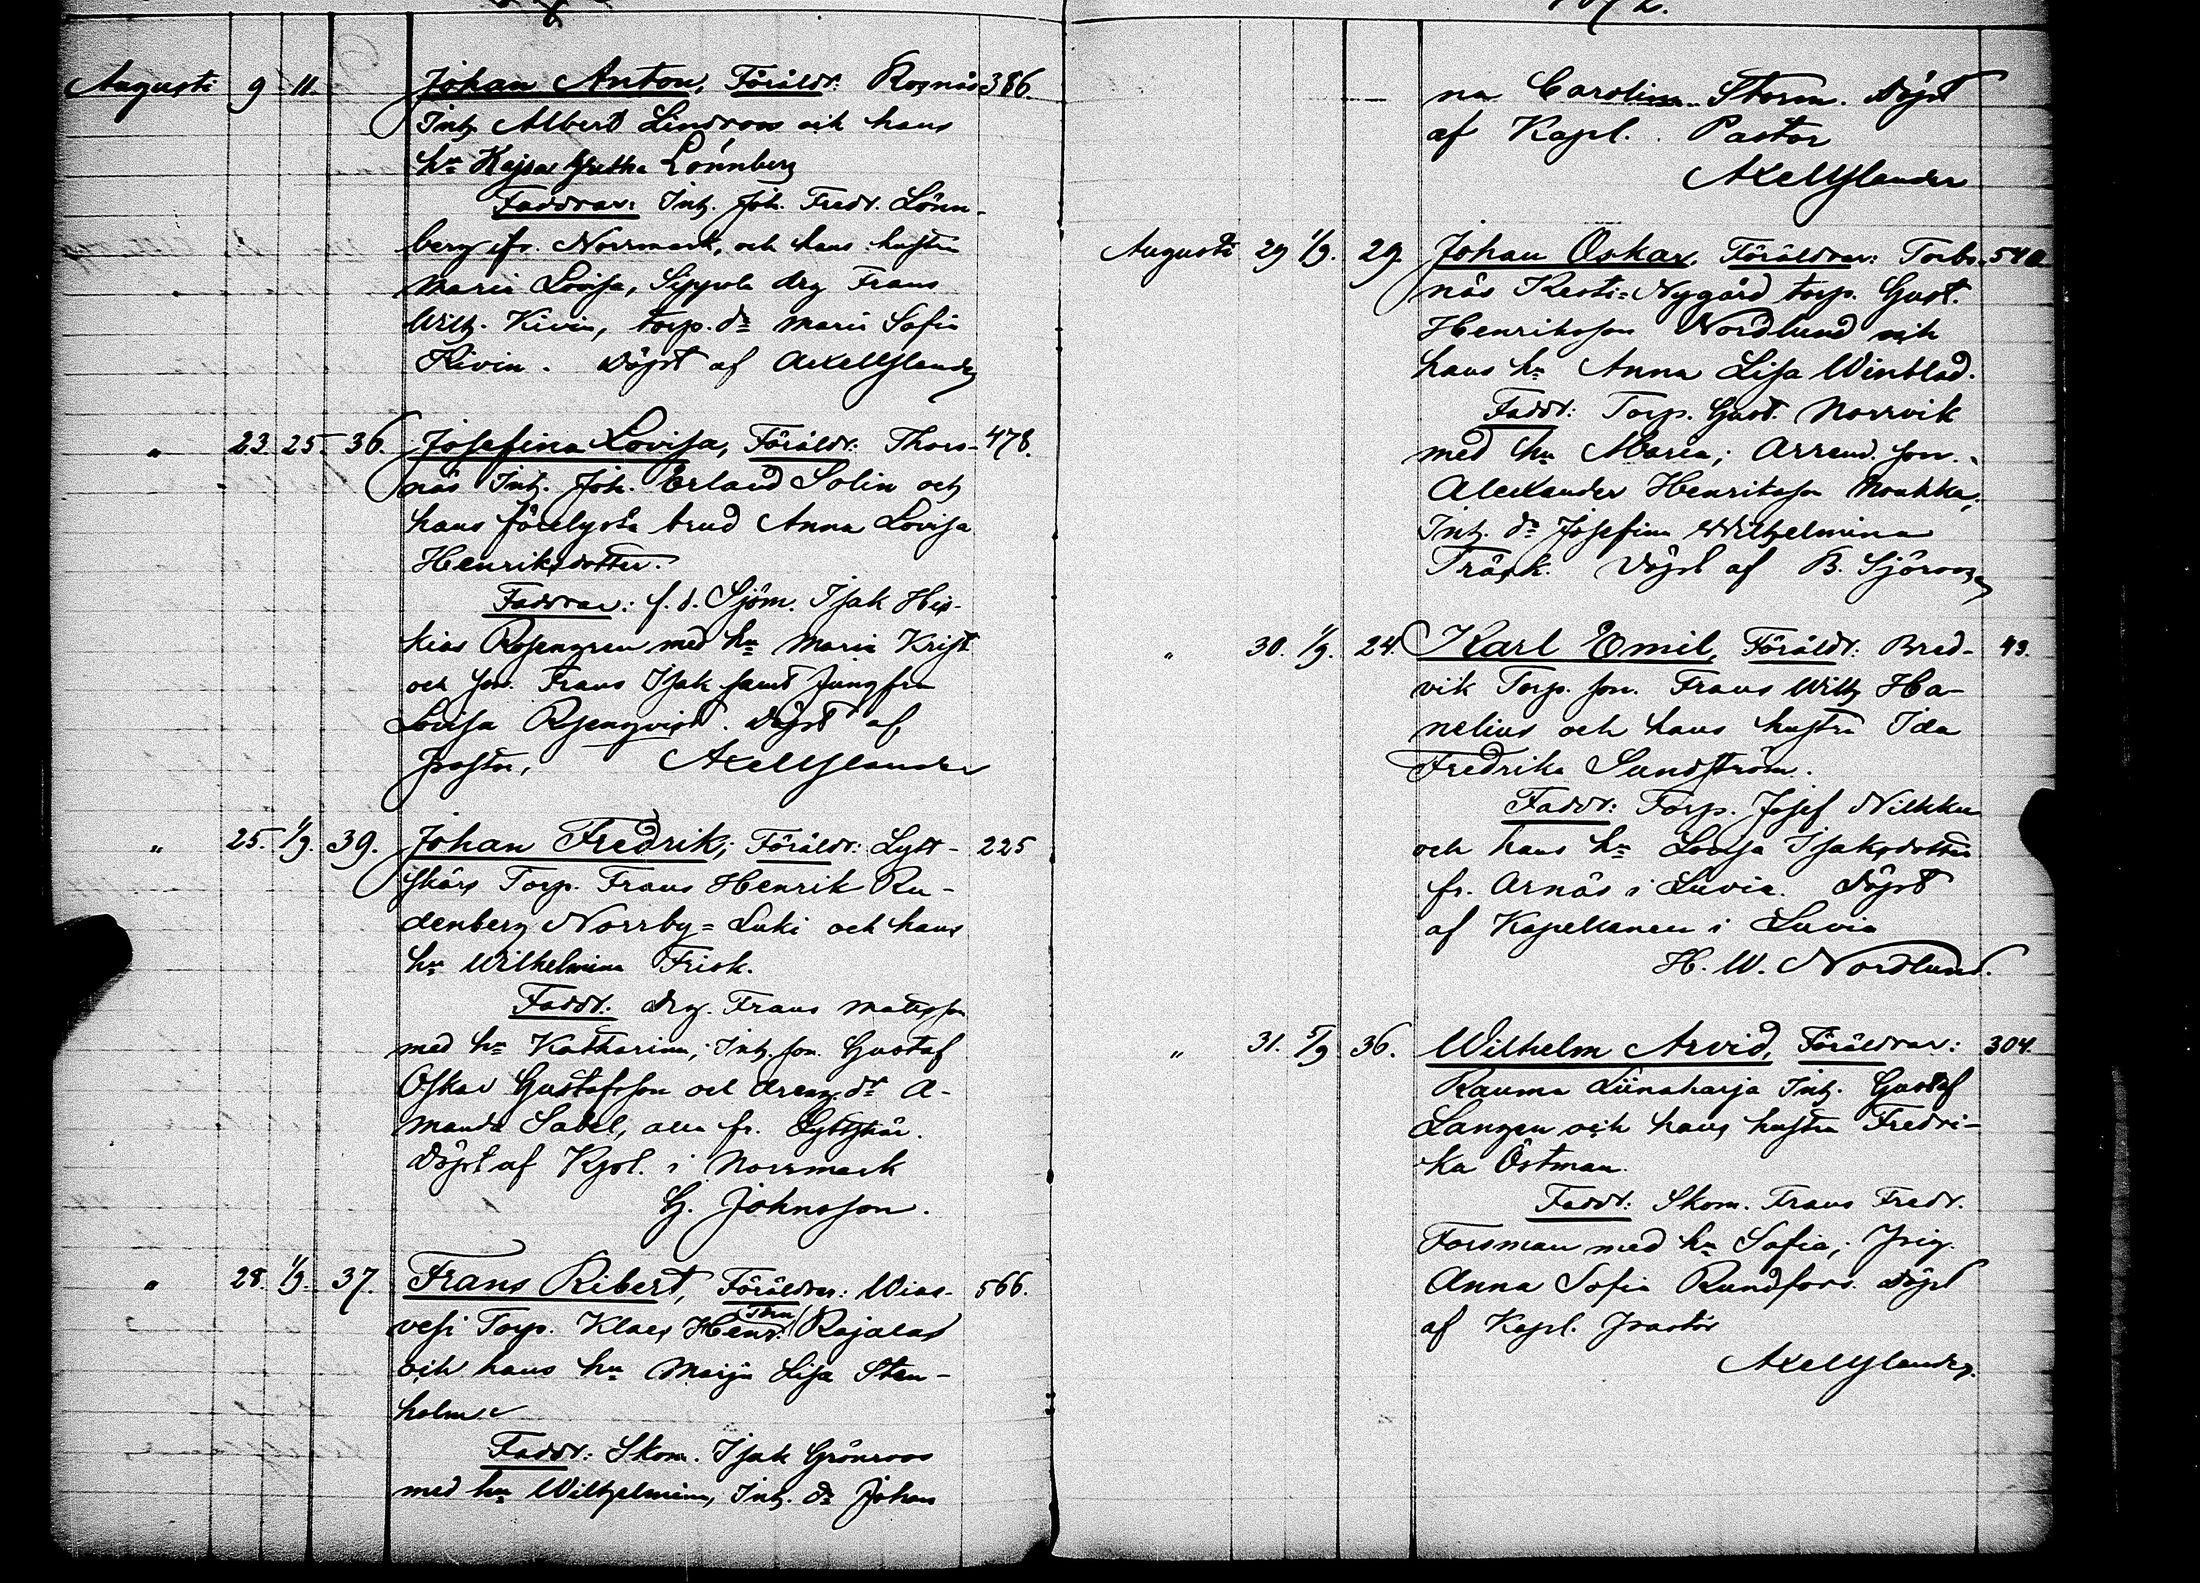 Augusti 9 11. Johan Anton, Föräldr: Rosnäs 386.
Inh. Albert Lindroos och hans
hu Kajsa Gretha Lönnberg
Faddrar: Inh. Joh. Fredr. Lönn-
berg fr. Norrmark, och hans hustru
Maria Lovisa, Sippola drg Frans
Wilh. Kivin, torp. dr Maria Sofia
Kivin. Döpt af Axel Ylander
" 23. 25. 36. Josefina Lovisa, Föräldr: Thors- 478.
näs Inh. Joh. Erland Solin och
hans förelysta brud Anna Lovisa
Henriksdotter.
Faddrar: f. d. Sjöm. Isak His-
kias Rosengren med hu Maria Krist
och son. Frans Isak samt Jungfru
Lovisa Rosenqvist. Döpt af
Pastor, Axel Ylander
" 25. 1/9. 39. Johan Fredrik; Föräldr: Lytt- 225
skärs Torp. Frans Henrik Ru-
denberg Norrby=Luki och hans
hu Wilhelmina Frisk.
Faddr: Drg. Frans Matsson
med hu Katharina; Inh. son. Gustaf
Oskar Gustafsson och dreng dr A-
manda Sabel, alla fr. Lyttskär.
Döpt af Kpl. i Norrmark
G. Johnsson.
" 28. 1/9. 37. Frans Ribert, Föräldrar: Wias- 566.
vesi Torp. Klaes Henr. Rajalas
och hans hu Maija Lisa Sten-
holm
Faddr: Skom. Isak Grönroos
med hu Wilhelmina, Inh. dr Johan
na Carolina Storm. Döpt
af Kapl. Pastor
Axel Ylander
Augusti 29 1/9. 29. Johan Oskar, Föräldrar: Torbs- 540
näs Kesti=Nygård torp. Gust.
Henriksson Nordlund och
hans hu Anna Lisa Winblad.
Faddr: Torp. Gust. Norrvik
med hu Maria; Arrend. son.
Alexander Henriksson Moukka,
Inh. dr Josefina Wilhelmina
Träsk. Döpt af B. Sjöroos
" 30. 1/9. 24. Karl Emil, Föräldr: Bred- 43.
vik Torp. son. Frans Wilh Ha-
nelius och hans hustru Ida
Fredrika Sundström.
Faddr: Torp. Josef Nikkku
och hans hu Lovisa Isaksdotter
fr. Arnäs i Luvia. Döpt
af Kapellanen i Luvia
H. W. Nordlund.
" 31. 5/9 36. Wilhelm Arvid, Föräldrar: 304.
Rauma Liinaharja Inh. Gustaf
Langen och hans hustru Fredri-
ka Östman.
Faddr: Skom. Frans Fredr.
Forsman med hu Sofia; Pig.
Anna Sofia Rundfors. Döpt
af Kapl. Pastor
Axel Ylander.